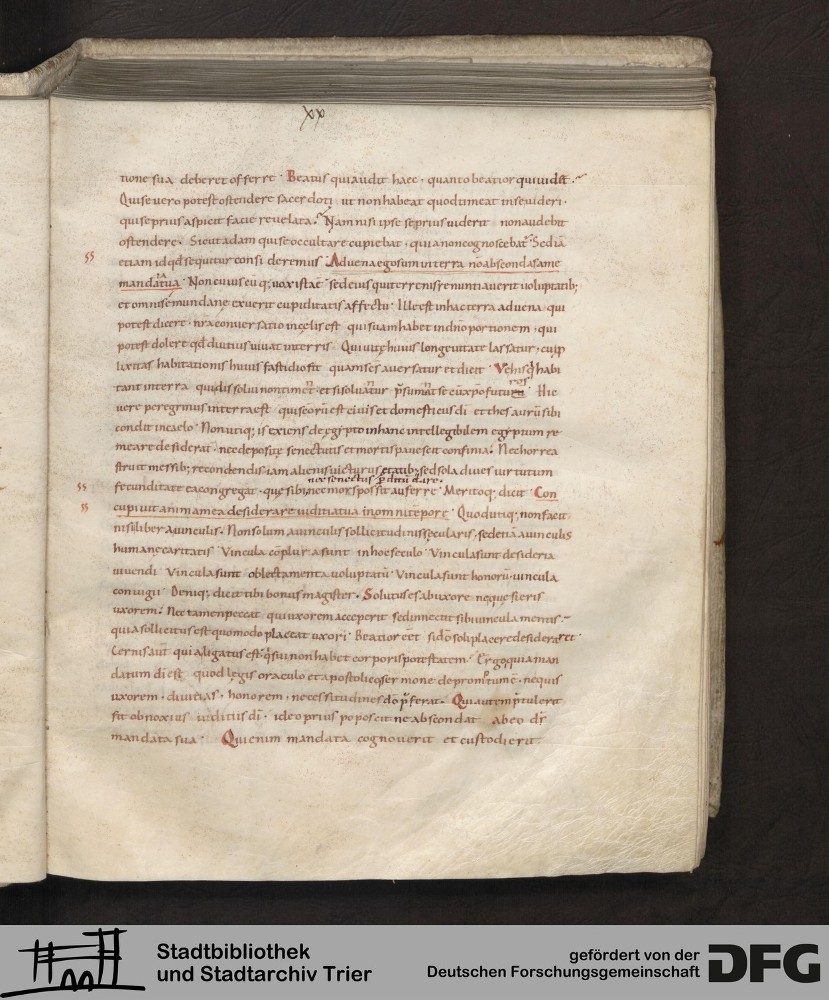 xx
tione sua deberet offerre. Beatus qui audit haec. quanto beatior qui uidet.
Qui se uero potest ostendere sacerdoti ut non habeat quod timeat in se uideri.
qui se prius aspicit facie reuelata. Nam nisi ipse se prius uiderit non audebit
ostendere. Sicut adam qui se occultare cupiebat. quia non cognoscebat. Sed iā
etiam id qd sequitur consideremus. Aduena ego sum in terra nō abscondas a me
mandata tua. Non cuiuis eū q; uox ista ē sed eius qui terrenis renuntiauerit uoluptatib;
et omnis emundanę exuerit cupiditatis affectū. Ille est in hac terra aduena. qui
potest dicere. nra conuersatio in cęlis est qui suam habet in dn̄o portionem. qui
potest dolere qd diutius uiuat in terris. Qui uitę huius longeuitate lassatur. cui
habitationis huius fastidio fit quam ses auersatur et dicit Veh
tant in terra quidissolui non timet. et si soluatur
uere peregrinus in terra est qui seorū est ciuis et domesticus di et thesaurū sibi
condit in caelo. Non utiq; is exiens de egypto in hanc intellegibilem egyptum re
meare desiderat. nec depositę senectutis et mortis pauescit confinia. Nec horrea
struit messib; recondendis. iam alienis uicturus etatib; sed sola diues uirtutum
nec senectus
fecunditate ea congregat. quę sibi nec mors possit auferre. Meritoq; dicit. Con
cupiuit anima mea desiderare iudicia tua in omni tēpore. Quod utiq; non facit
nisi liber a uinculis. Non solum a uinculis sollicitudinis sęcularis. sed etiā a uinculis
humanę caritatis. Vincula cōplura sunt in hoc seculo. Vincula sunt desideria
uiuendi. Vincula sunt oblectamenta uoluptatū. Vincula sunt honorū. uincula
coniugii. Deniq; dicit tibi bonus magister. Solutus es ab uxore ne quesieris
uxorem. Nec tamen peccat qui uxorem acceperit sed innectit sibi uincula mentis.
quia sollicitus est quomodo placeat uxori. Beatior eet si dō soli placere desideraret.
Cernis aut qui aligatus est. qsui non habet corporis potestatem. Ergo quia man
datum di est quod legis oraculo et apostolico sermone depromtum ē. nequis
uxorem. diuitias. honorem. necessitudines dō pferat. Qui autem ptulerit
fit obnoxius iuditiis di. ideo prius poposcit ne abscondat ab eo ds
mandata sua. Qui enim mandata cognouerit et custodierit
Stadtbibliothek
und Stadtarchiv Trier
gefördert von der
Deutschen Forschungsgemeinschaft
DFG